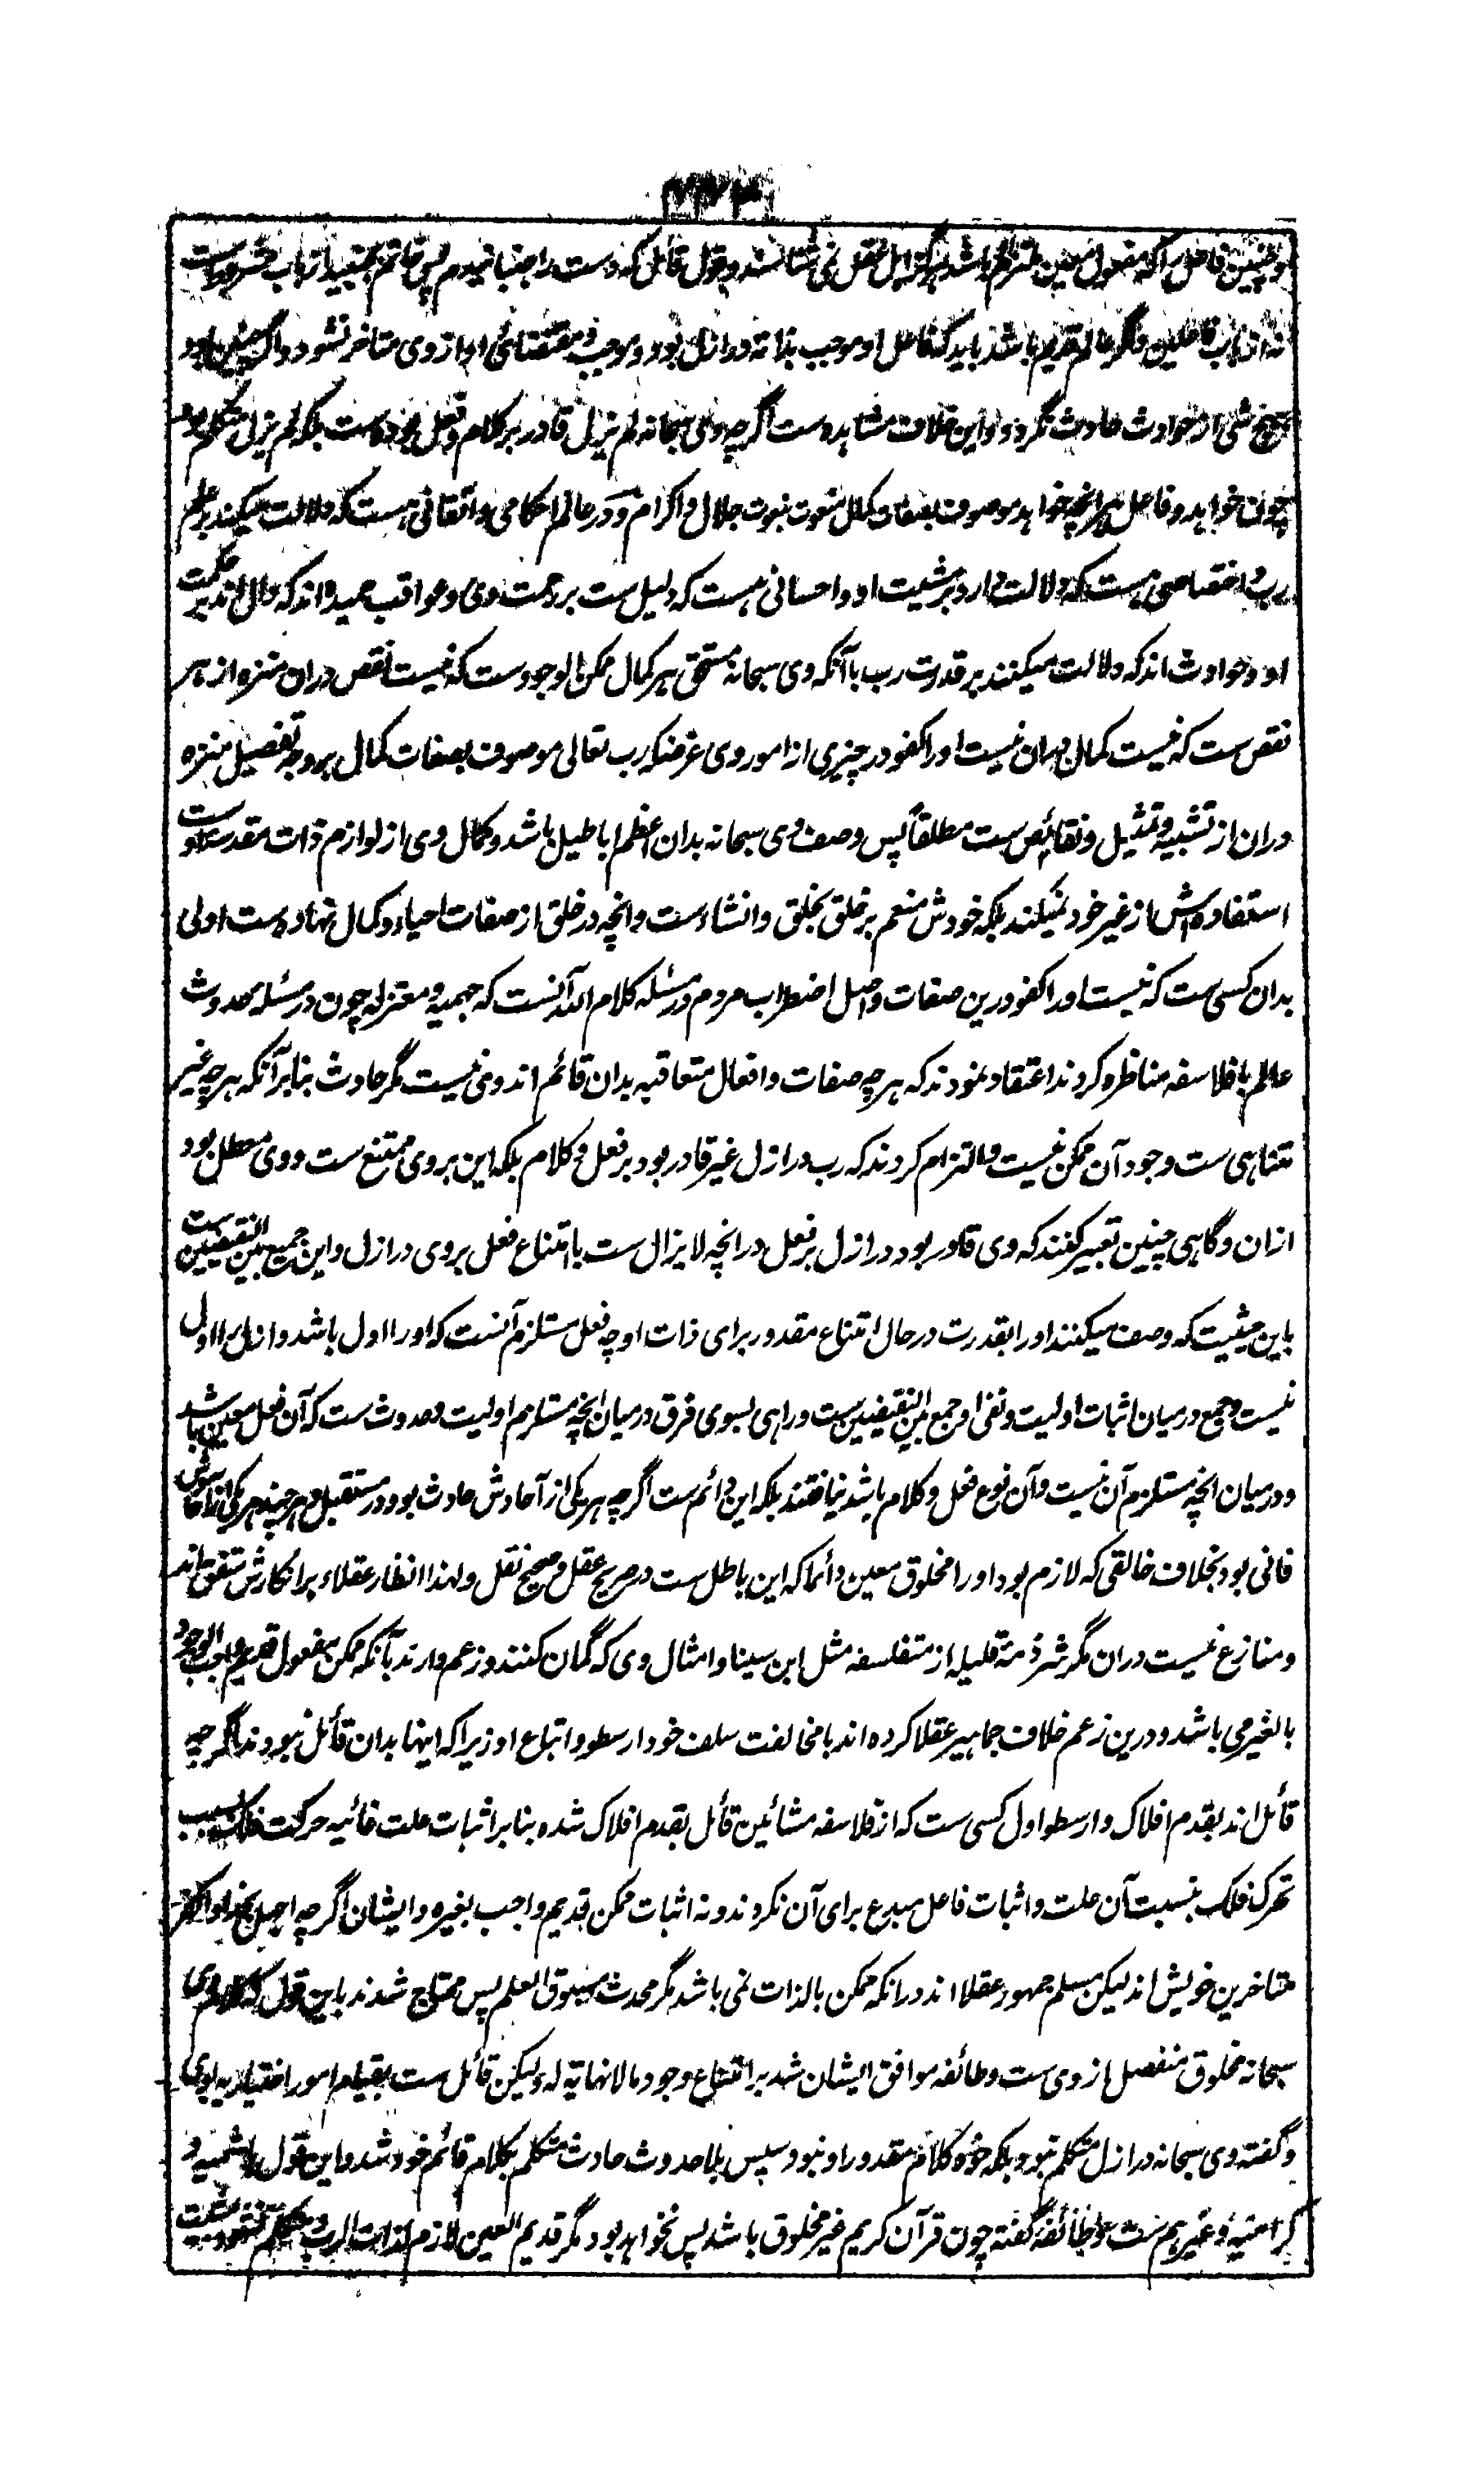 و چنین فاعل را که مفعول معین ملتزم او باشد هرگز اهل عقل نمی شناسند و قول قائل که دست را جنبانیدم پس خاتم بجنبید از باب شرط ست
نه از باب فاعلین و اگر عالم قدیم باشد باید که فاعل او موجب بذاته در ازل بود و موجب و مقتضائی او از وی متاخر نشود و اگر چنین بود
هیچ شی از حوادث حادث نگردد و این خلاف مشاهده ست اگرچه وی سبحانه لم یزل قادر بر کلام و فعل خود ست بلکه لم یزل متکلم بود
چون خواهد و فاعل هر انچه خواهد موصوف بصفات کمال منعوت بنعوت جلال و اکرام و در عالم احکامی و اتقانی هست که دلالت میکند بر علم
رب و اختصاصی هست که دلالت دارد بر مشیت او و احسانی هست که دلیل ست بر رحمت وی و عواقب حمیده اند که دال اند بر حکمت
او و حوادث اند که دلالت میکنند بر قدرت رب با آنکه وی سبحانه مستحق هر کمال ممکن الوجود ست که نیست نقص دران منزه از هر
نقص ست که نیست کمال دران نیست او را کفو در چیزی از امور وی غرضکه رب تعالی موصوف بصفات کمال بر وجه تفصیل منزه
دران از تشبیه و تمثیل و نقائص ست مطلقاً پس وصف وی سبحانه بدان اعظم اباطیل باشد و کمال وی از لوازم ذات مقدسه اوست
استفاده اش از غیر خود نمیکند بلکه خودش منعم بر خلق بخلق و انشاء ست و انچه در خلق از صفات احیاء و کمال نهاده ست اولی
بدان کسی ست که نیست او را کفو درین صفات و اصل اضطراب مردم در مسئله کلام الله آنست که جهمیه و معتزله چون در مسئله حدوث
عالم با فلاسفه مناظره کردند اعتقاد نمودند که هر چه صفات و افعال متعاقبه بدان قائم اند وی نیست مگر حادث بنا بر آنکه هر چه غیر
متناهی ست وجود آن ممکن نیست و التزام کردند که رب در ازل غیر قادر بود بر فعل و کلام بلکه این بر وی ممتنع ست و وی معطل بود
ازان و گاهی چنین تعبیر کنند که وی قادر بود در ازل بر فعل در انچه لا یزال ست با امتناع فعل بر وی در ازل و این جمع بین النقیضین ست
باین حیثیت که وصف میکنند او را بقدرت در حال امتناع مقدور برای ذات او چه فعل مستلزم آنست که او را اول باشد و ازل را اولی
نیست و جمع درمیان اثبات اولیت و نفی او جمع بین النقیضین ست و راهی بسوی فرق درمیان انچه مستلزم اولیت و حدوث ست که آن فعل معین باشد
و درمیان انچه مستلزم آن نیست و آن نوع فعل و کلام باشد نیافتند بلکه این دائم ست اگرچه هر یکی از آحادش حادث بود و در مستقبل هر چند هر یکی از آحادش
فانی بود بخلاف خالقی که لازم بود او را مخلوق معین دائما که این باطل ست در صریح عقل و صحیح نقل و لهذا انظار عقلاء بر انکارش متفق اند
و منازع نیست دران مگر شرذمه قلیله از متفلسفه مثل ابن سینا و امثال وی که گمان کنند و زعم دارند بآنکه ممکن مفعول قدیم واجب الوجود
بالغیر می باشد و درین زعم خلاف جماهیر عقلا کرده اند با مخالفت سلف خود ارسطو و اتباع او زیرا که اینها بدان قائل نبودند اگرچه
قائل اند بقدم افلاک و ارسطو اول کسی ست که از فلاسفه مشائین قائل بقدم افلاک شده بنا بر اثبات علت غائیه حرکت فلک بسبب
تحرک فلک بنسبت آن علت و اثبات فاعل مبدع برای آن نکردند و نه اثبات ممکن قدیم واجب بغیره و ایشان اگرچه اجهل بخدا و اکفر
متاخرین خویش اند لیکن مسلم جمهور عقلا اند درانکه ممکن بالذات نمی باشد مگر محدث مسبوق العلم پس محتاج شدند باین قول که کلام وی
سبحانه مخلوق منفصل از وی ست و طائفه موافق ایشان شد بر امتناع وجود ما لا نهایة له و لیکن قائل ست بقیام امور اختیاریه بوی
و گفته وی سبحانه در ازل متکلم نبود بلکه خود کلام مقدور او نبود سپس بلا حدوث حادث متکلم بکلام قائم خود شد و این قول هاشمیه و
کرامیه و غیرهم ست و طائفه گفته چون قرآن کریم غیر مخلوق باشد پس نخواهد بود مگر قدیم العین لازم لذات الرب